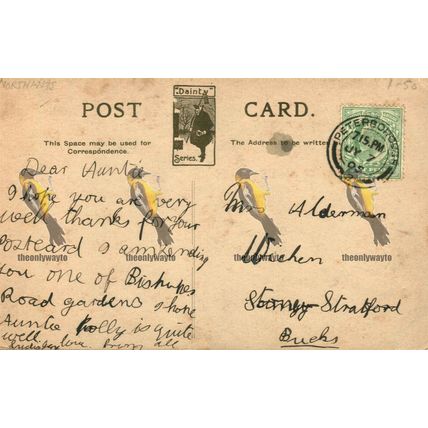 NORTHANTS
1-50
POST CARD.
"Dainty"
Series.
This Space may be used for
Correspondence.
The Address to be written
PETERBOROUGH
7.15 PM
JY 7
Dear Auntie
I hope you are very
well thanks for your
Postcard I am sending
you one of Bishopes
Road gardens I hope
Auntie Polly is quite
well. love from all
Mrs Alderman
Stoney Stratford
Bucks
theonlywayto theonlywayto theonlywayto theonlywayto